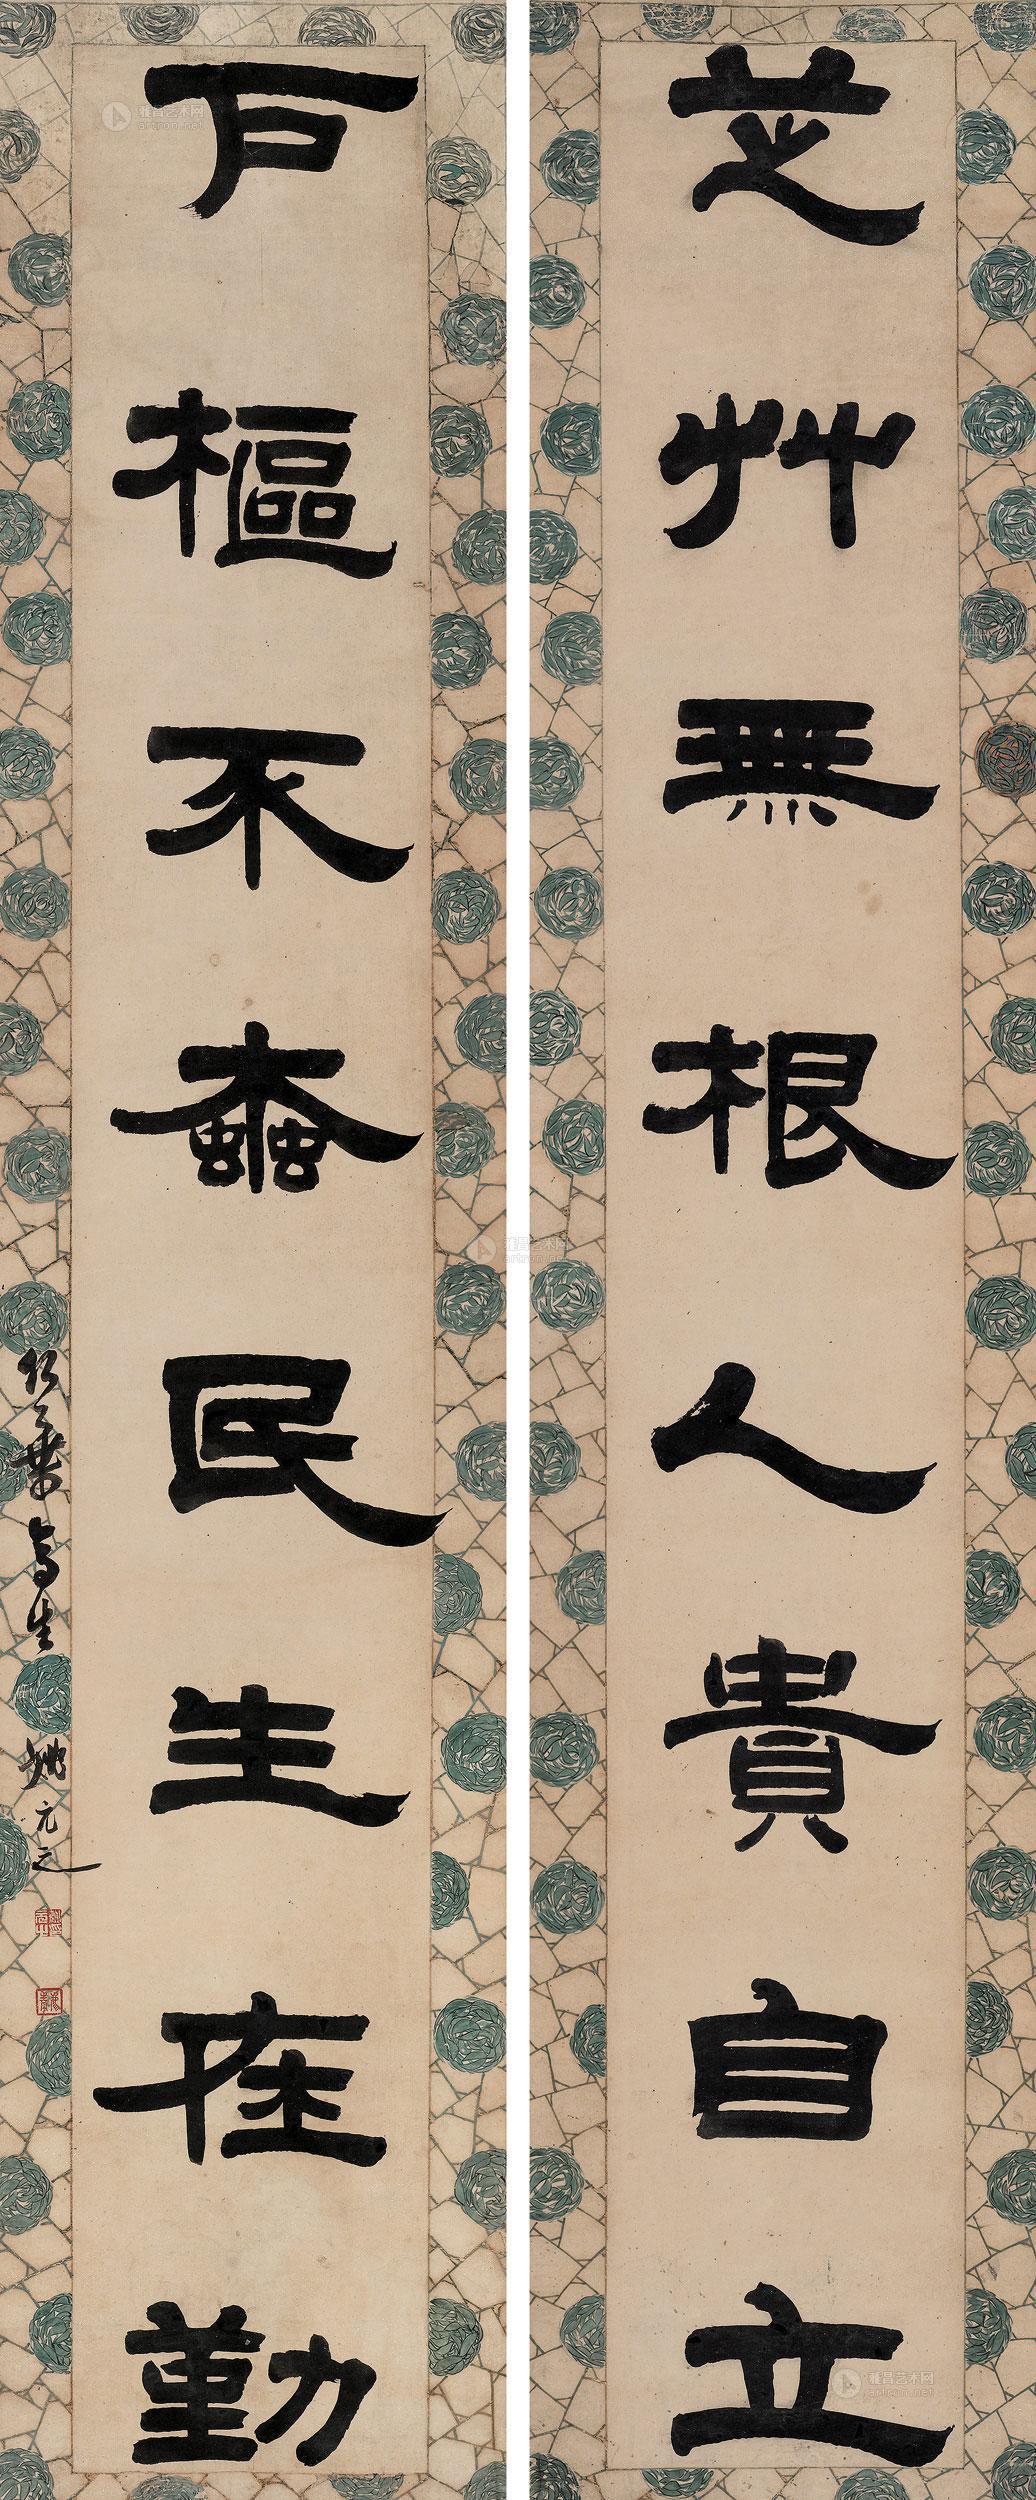 芝艸無根人貴自立
戶樞不蠹民生在勤
姚元之
雅昌艺术网
artron.net